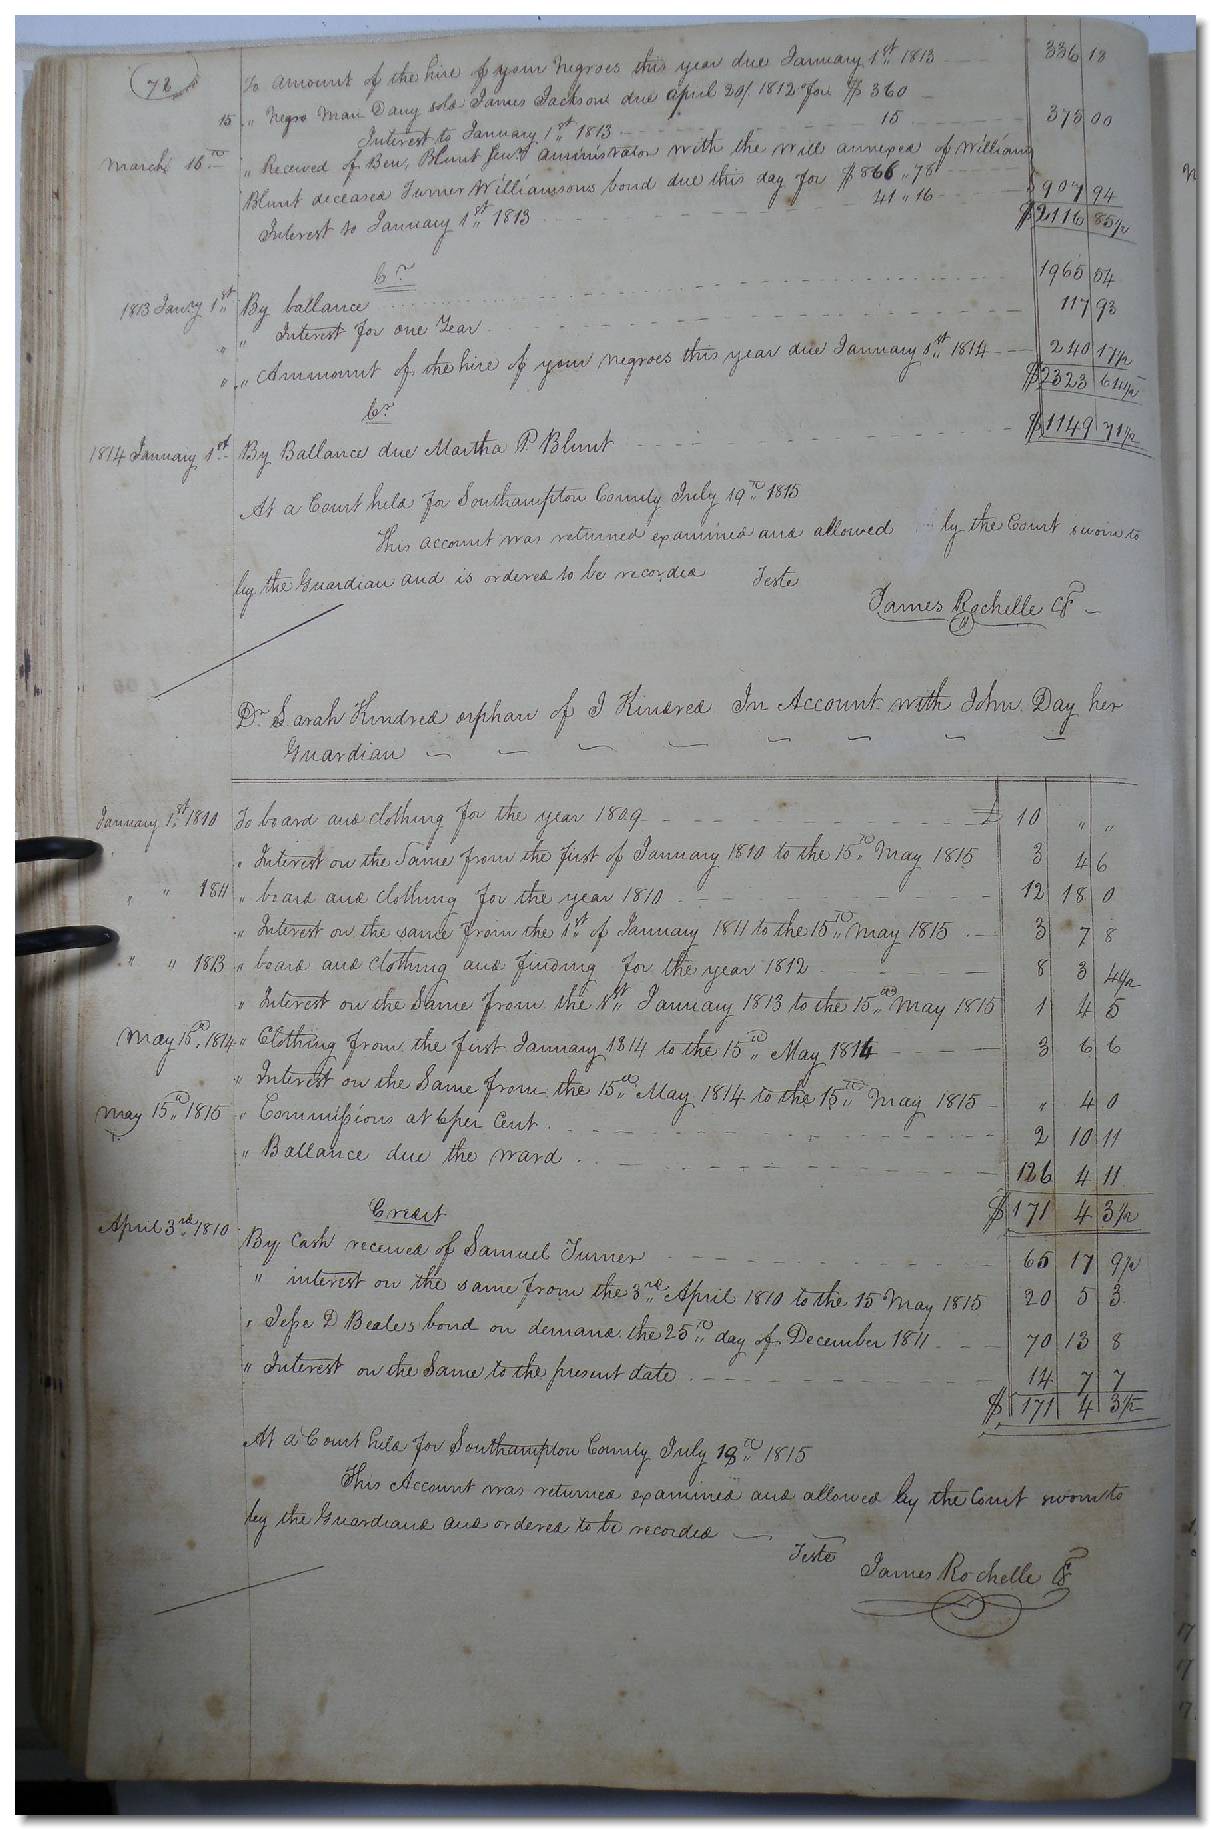 72
To amount of the hire of your negroes this year due January 1st 1813 336 18
15 " Negro Man Davy sold James Jackson due april 20/ 1812 for $ 360
Interest to January 1st 1813 15 375 00
March 16th " Received of Ben. Blunt Senr administrator with the will annexed of William
Blunt deceased Turner Williamsons bond due this day for $866 " 78
Interest to January 1st 1813 41 " 16 907 94
$2116 85 1/2
Cr
1813 Janry 1st By ballance 1965 54
" " Interest for one Year 117 93
" " Ammount of the hire of your negroes this year due January 1st 1814 240 17 1/2
$2323 64 1/2
Cr
1814 January 1st By Ballance due Martha P. Blunt $1149 71 1/2
At a Court held for Southampton County July 19th 1815
This account was returned examined and allowed by the Court sworn to
by the Guardian and is ordered to be recorded Teste
James Rochelle C
Dr Sarah Kindred orphan of J Kindred In Account with John Day her
Guardian
January 1st 1810 To board and clothing for the year 1809 £ 10 " "
" Interest on the Same from the first of January 1810 to the 15th May 1815 3 4 6
" " 1811 " board and clothing for the year 1810 12 18 0
" Interest on the same from the 1st of January 1811 to the 15th May 1815 3 7 8
" " 1813 " board and clothing and finding for the year 1812 8 3 4 1/2
" Interest on the Same from the 1st January 1813 to the 15th May 1815 1 4 5
May 15th 1814 " Clothing from the first January 1814 to the 15th May 1814 3 6 6
" Interest on the Same from the 15th May 1814 to the 15th May 1815 " 4 0
May 15th 1815 " Commissions at 6 per Cent 2 10 11
" Ballance due the ward 126 4 11
$ 171 4 3 1/2
Credit
April 3rd 1810 By Cash received of Samuel Turner 65 17 9 1/2
" interest on the same from the 3rd April 1810 to the 15 May 1815 20 5 3
" Jesse D Beales bond on demand the 25th day of December 1811 70 13 8
" Interest on the Same to the present date 14 7 7
$ 171 4 3 1/2
At a Court held for Southampton County July 19th 1815
This Account was returned examined and allowed by the Court sworn to
by the Guardians and ordered to be recorded
Teste James Rochelle C